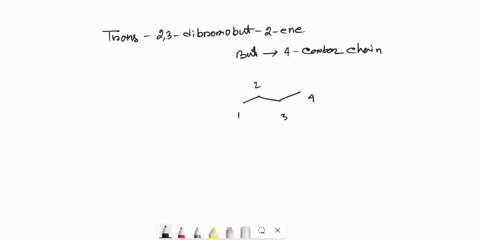 Trans - 2,3-dibromobut-2-ene
But → 4-carbon chain
2
4
1
3